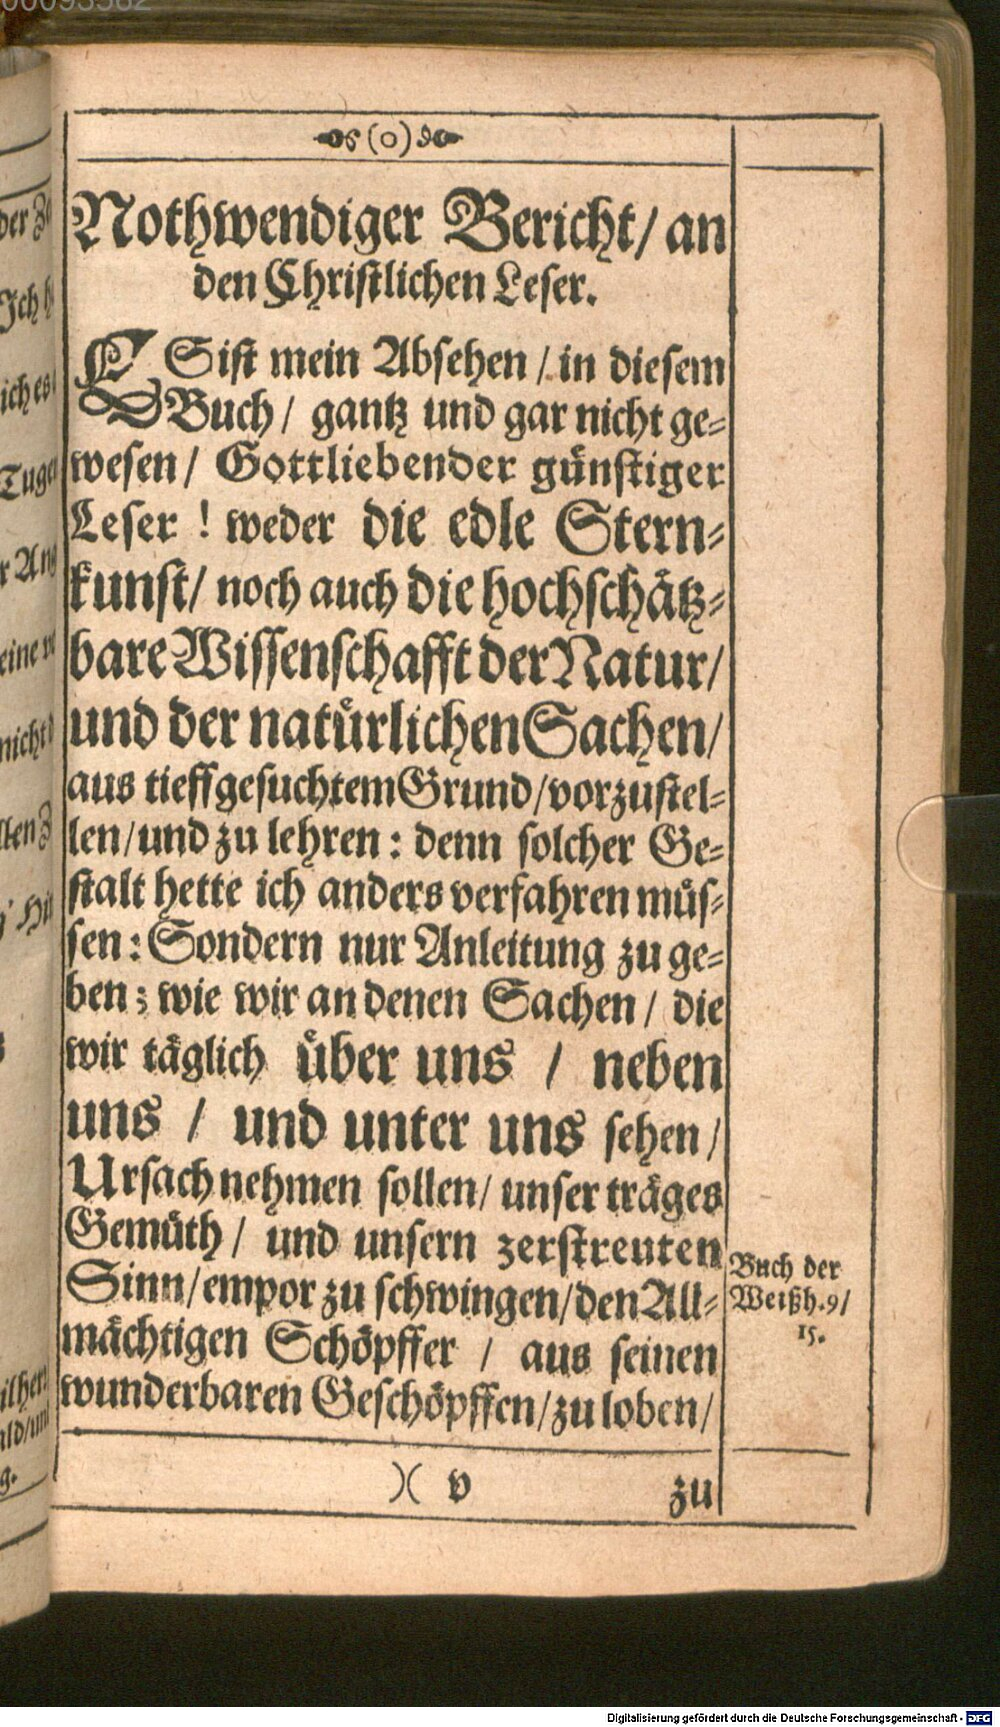 (o)
Nothwendiger Bericht/ an
den Christlichen Leser.
ES ist mein Absehen / in diesem
Buch / gantz und gar nicht ge-
wesen / Gottliebender günstiger
Leser ! weder die edle Stern-
kunst / noch auch die hochschätz-
bare Wissenschafft der Natur /
und der natürlichen Sachen /
aus tieffgesuchtem Grund / vorzustel-
len / und zu lehren : denn solcher Ge-
stalt hette ich anders verfahren müs-
sen : Sondern nur Anleitung zu ge-
ben ; wie wir an denen Sachen / die
wir täglich über uns / neben
uns / und unter uns sehen /
Ursach nehmen sollen / unser träges
Gemüth / und unsern zerstreuten
Sinn / empor zu schwingen / den All-
mächtigen Schöpffer / aus seinen
wunderbaren Geschöpffen / zu loben /
Buch der
Weißh. 9/
15.
)( v
zu
Digitalisierung gefördert durch die Deutsche Forschungsgemeinschaft - DFG